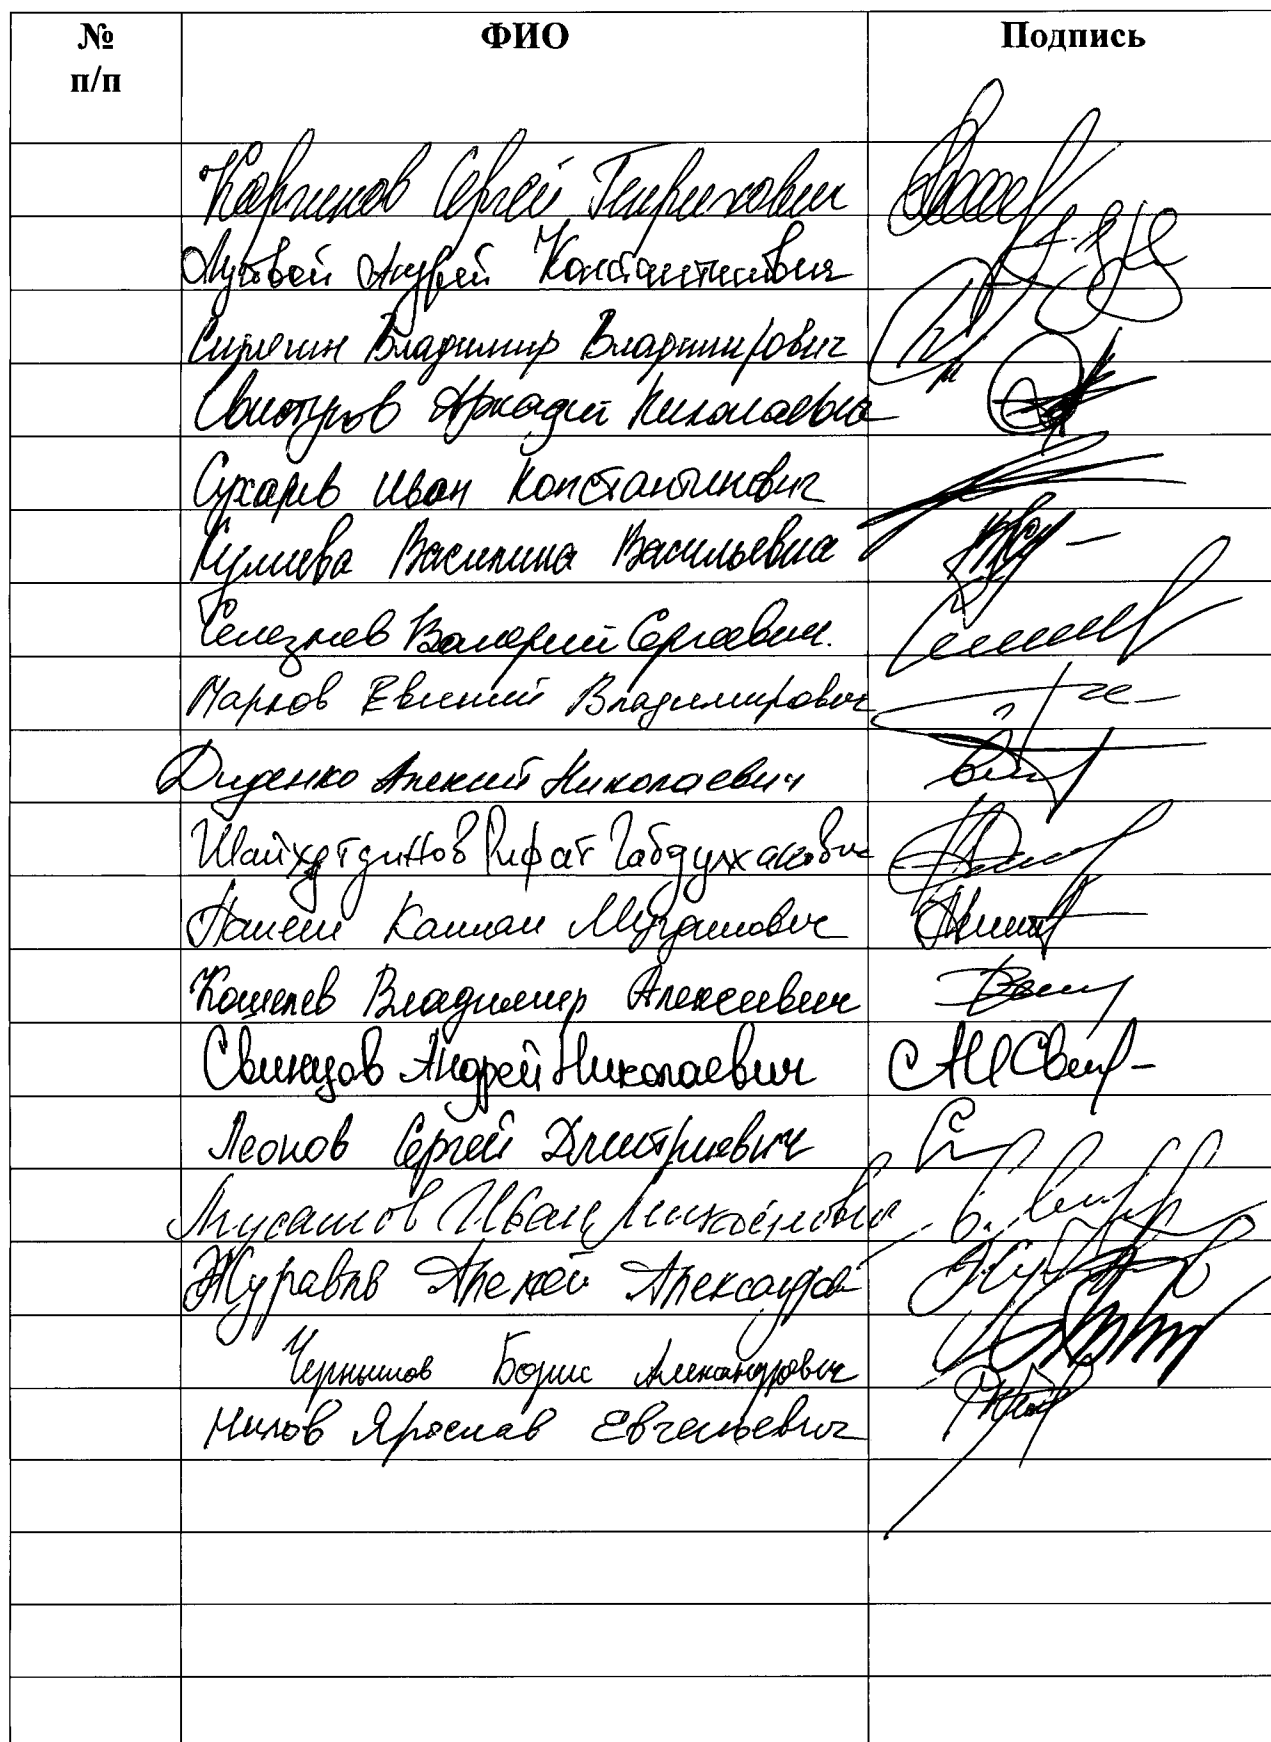 № ФИО Подпись
п/п
Каргинов Сергей Генрихович
Луговой Андрей Константинович
Сипягин Владимир Владимирович
Свистунов Аркадий Николаевич
Сухарев Иван Константинович
Кулиева Василина Васильевна
Селезнев Валерий Сергеевич.
Марков Евгений Владимирович
Диденко Алексей Николаевич
Шайхутдинов Рифат Габдулхакович
Панеш Каплан Мугдинович
Кошелев Владимир Алексеевич
Свинцов Андрей Николаевич
Леонов Сергей Дмитриевич
Мусатов Иван Михайлович
Журавлев Алексей Александр
Чернышов Борис Александрович
Нилов Ярослав Евгеньевич